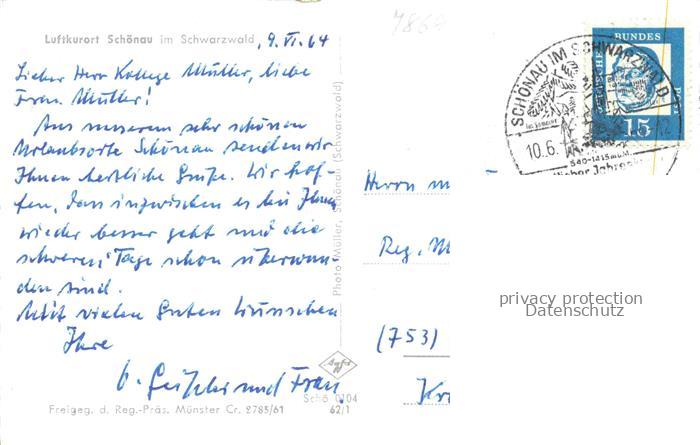 Luftkurort Schönau im Schwarzwald, 9.VI.64
Lieber Herr Kollege Müller, liebe
Frau Müller!
Aus unserem sehr schönen
Urlaubsorte Schönau senden wir
Ihnen herzliche Grüße. Wir hof-
fen, dass inzwischen es bei Ihnen
wieder besser geht und die
schweren Tage schon überwun-
den sind.
Mit vielen guten Wünschen
Ihre
und Frau
Freigeg. d. Reg.-Präs. Münster Cr. 2785/61
Schö 0104
62/1
Agfa
Photo Müller, Schönau (Schwarzwald)
7869
SCHÖNAU IM SCHWARZWALD
10.6.
540-1415 m ü.M.
BUNDES
15
Herrn
Reg. M
(753)
privacy protection
Datenschutz